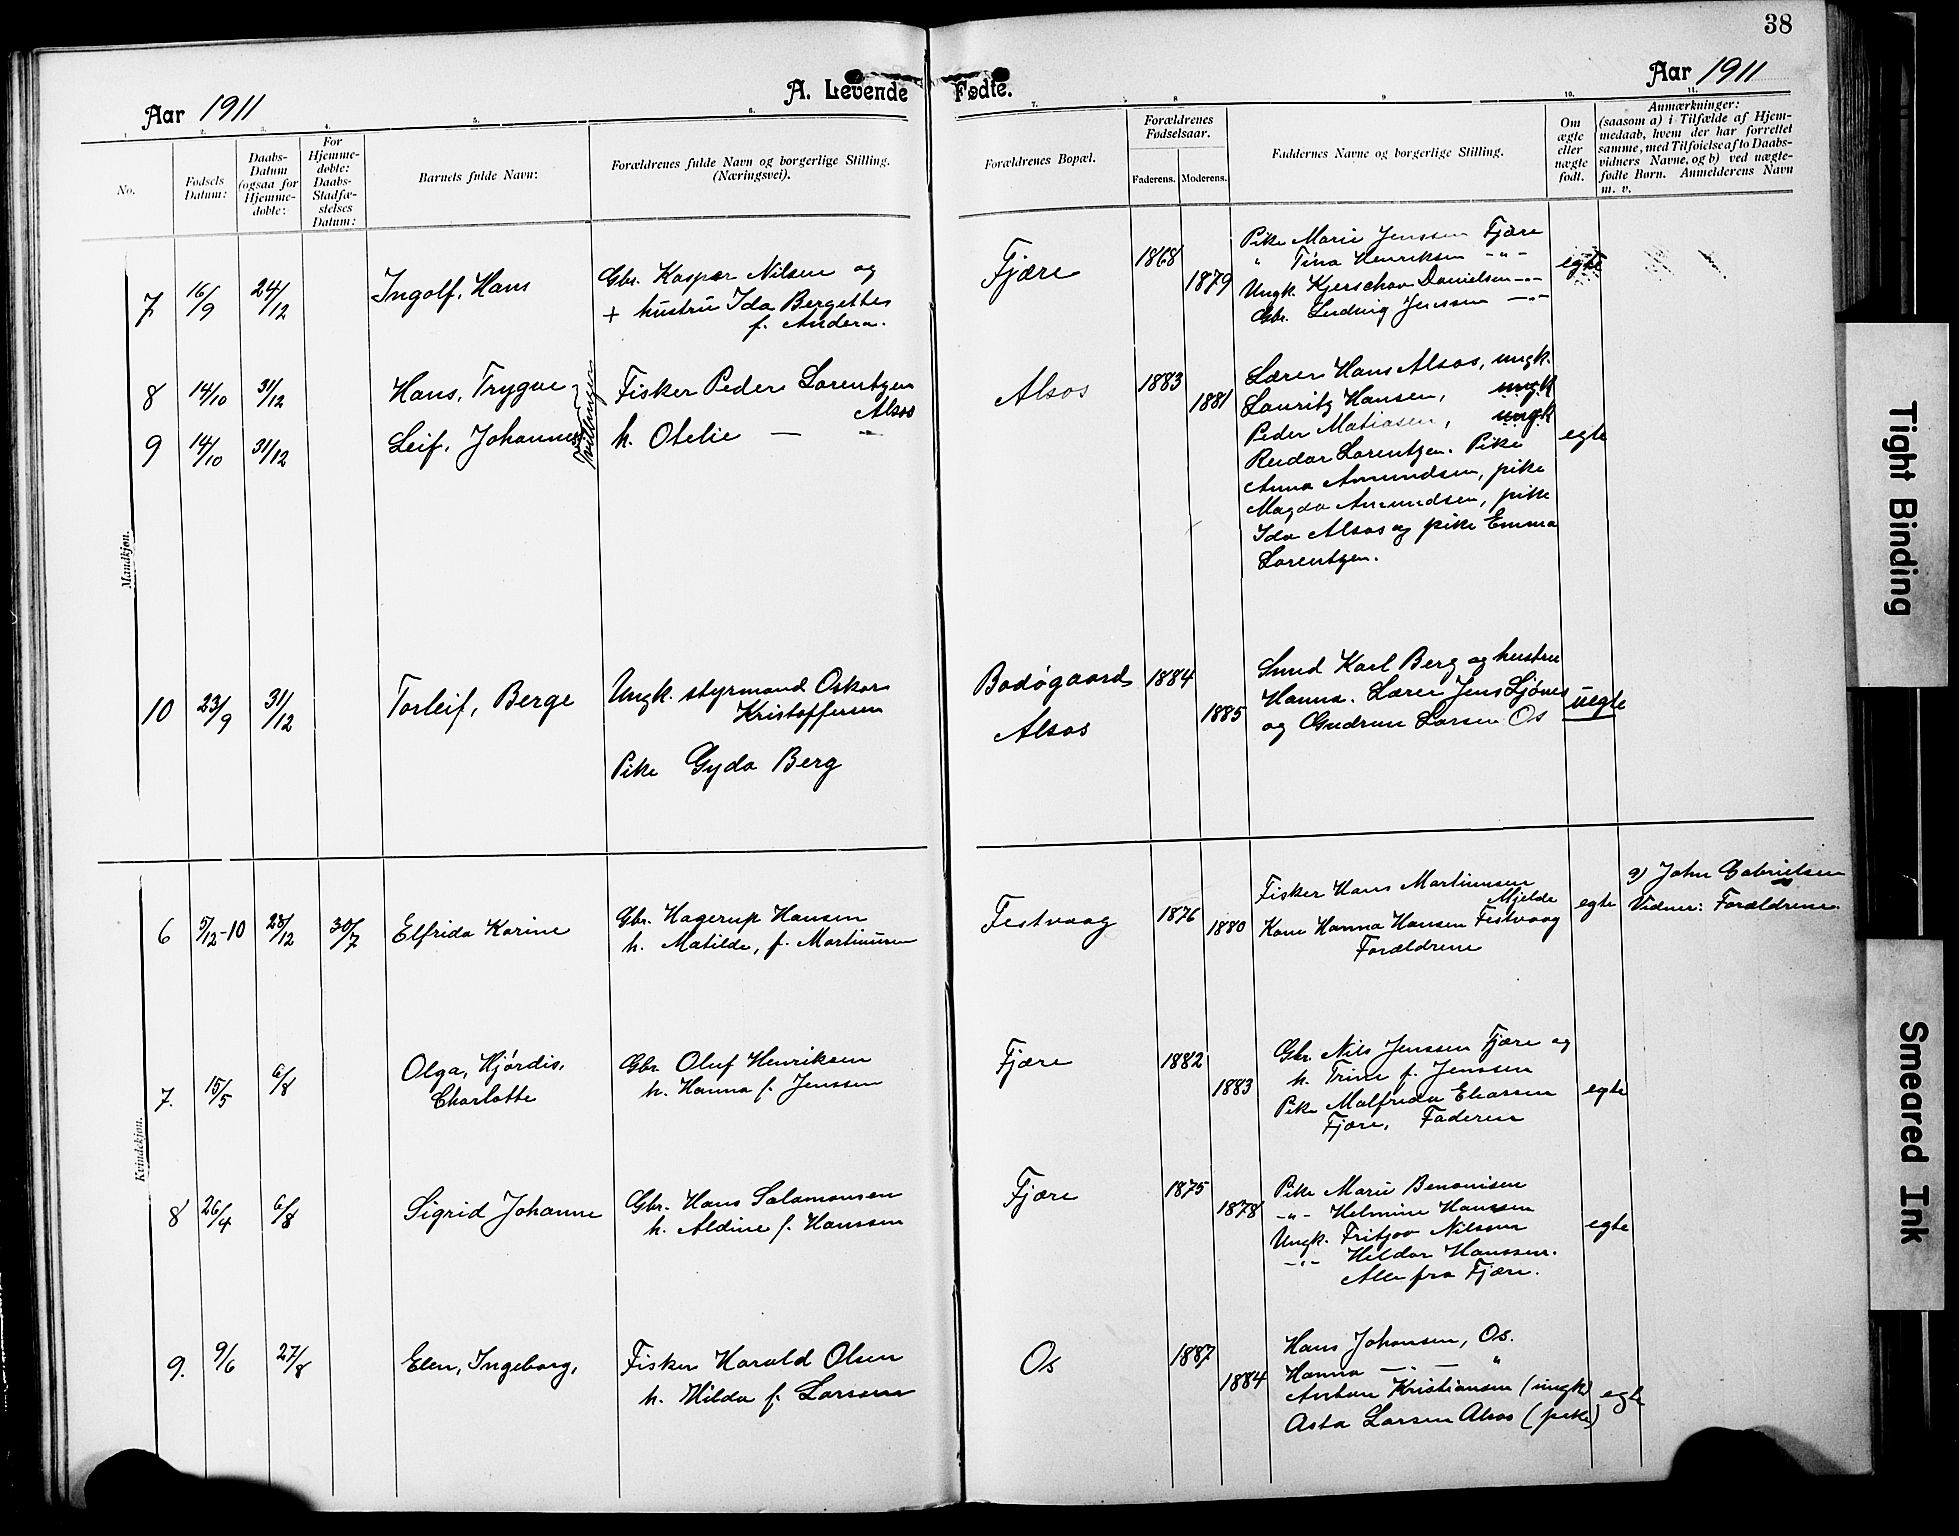 38
Aar 1911
A. Levende Fødte.
Aar 1911
1. 2. 3. 4. 5. 6. 7. 8 9 10. 11.
No.
Fødsels Datum:
Daabs-Datum (ogsaa for Hjemme-døbte:
For Hjemme-døbte: Daabs-Stadfæ-stelses Datum:
Barnets fulde Navn:
Forældrenes fulde Navn og borgerlige Stilling. (Næringsvei).
Forældrenes Bopæl.
Forældrenes Fødselsaar.
Faderens. Moderens.
Faddernes Navne og borgerlige Stilling.
Om ægte eller uægte født.
Anmærkninger:
(saasom a) i Tilfælde af Hjem-
medaab, hvem der har forrettet
samme, med Tilføielse af to Daabs-
vidners Navne, og b) ved uægte-
fødte Børn. Anmelderens Navn
m. v.
Mandkjøn.
7 16/9 24/12 Ingolf, Hans
Gbr. Kaspar Nilsen og
+ hustru Ida Bergettes
f. Andera.
Fjære 1868 1879
Pike Marie Jenssen Fjære
" Tina Henriksen -"-
Ungk. Kjerschav Danielsen -"-
Gbr. Ludvig Jenssen -"-
egte
8 14/10 31/12 Hans, Trygve
9 14/10 31/12 Leif, Johannes
Tvillinger
Fisker Peder Lorentzen
Alsos
h. Otelie — -"-
Alsos 1883 1881
Lærer Hans Alsos, ungk.
Lauritz Hansen, ungk
Peder Matiasen, ungk
Reidar Lorentzen. Pike
Anna Amundsen, pike
Magda Amundsen, pike
Ida Alsos og pike Emma
Lorentzen.
egte
10 23/9 31/12 Torleif, Berge
Ungk. styrmand Oskar
Kristoffersen
Pike Gyda Berg
Bodøgaard
Alsos
1884 1885
Smed Karl Berg og hustru
Hanna. Lærer Jens Sjønes
og Gudrun Larsen Os
uegte
Kvindekjøn.
6 5/12-10 28/12 30/7 Elfrida Karine
Gbr. Hagerup Hansen
h. Matilde, f. Martinusen
Festvaag 1876 1880
Fisker Hans Martinusen
Mjelde
Kone Hanna Hansen Festvaag
Forældrene
egte
a) John Gabrielsen
Vidner: Forældrene.
7. 15/5 6/8 Olga, Hjørdis,
Charlotte
Gbr. Oluf Henriksen
h. Hanna f. Jenssen
Fjære 1882 1883
Gbr. Nils Jenssen Fjære og
h. Trine f. Jenssen
Pike Malfrida Eliassen
Fjære, Faderen
egte
8 26/4 6/8 Sigrid Johanne
Gbr. Hans Salamonsen
h. Aldine f. Hanssen
Fjære 1875 1878
Pike Marie Benonisen
-"- Helmine Hanssen
Ungk. Fritjov Nilssen
-"- Hildor Hanssen.
Alle fra Fjære.
egte
9. 9/6 27/8 Elen, Ingeborg,
Fisker Harald Olsen
h. Hilda f. Larssen
Os 1887 1884
Hans Johansen, Os.
Hanna -"- "
Anton Kristiansen (ungk)
Asta Larsen Alsos (pike)
egte
Tight Binding
Smeared Ink